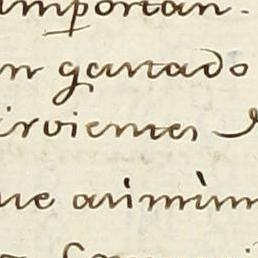 importan.
n gastado
irvientes
ue asimism